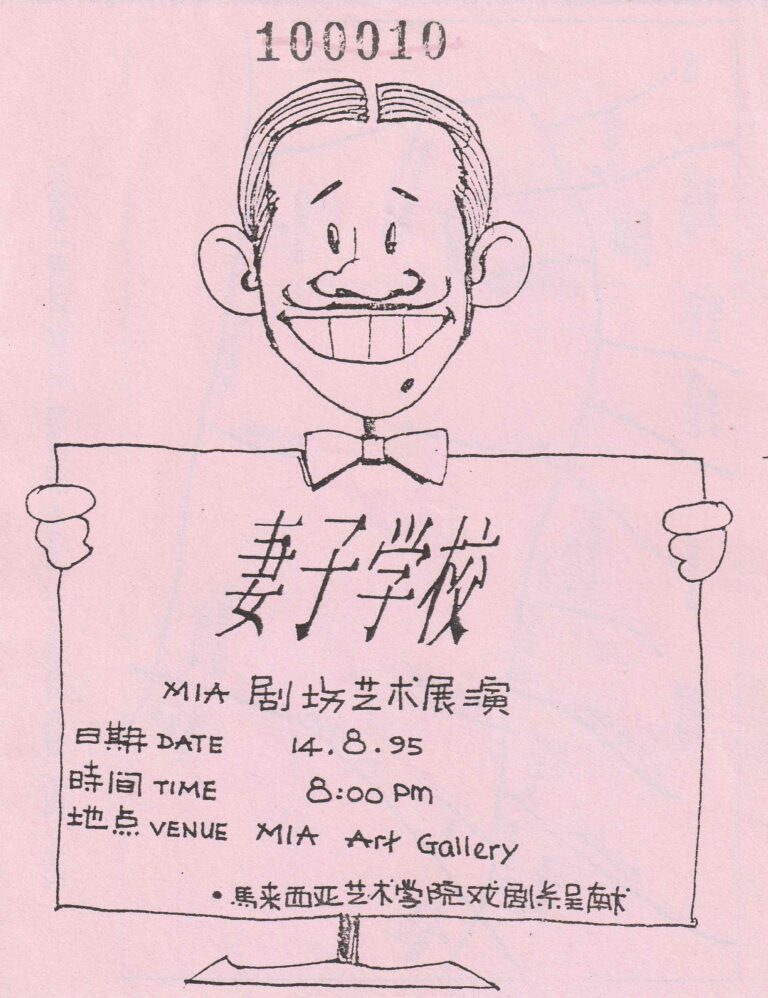 100010
妻子学校
MIA 剧坊艺术展演
日期 DATE 14.8.95
時间 TIME 8:00 pm
地点 VENUE MIA Art Gallery
• 馬来西亚艺术学院戏剧系呈献